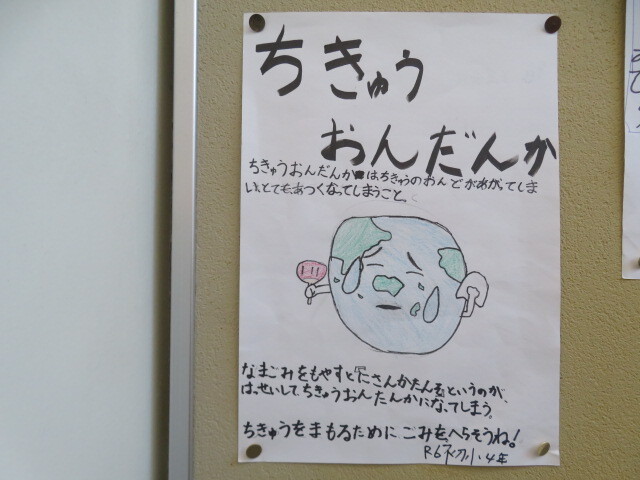 ちきゅう
おんだんか
ちきゅうおんだんかはちきゅうのおんどがあがってしま
い、とても、あつくなってしまうこと。
なまごみをもやすと『にさんかたんそ』というのが、
はっせいしてちきゅうおんたんかになってしまう。
ちきゅうをまもるために ごみをへらそうね!
R6 小・4年